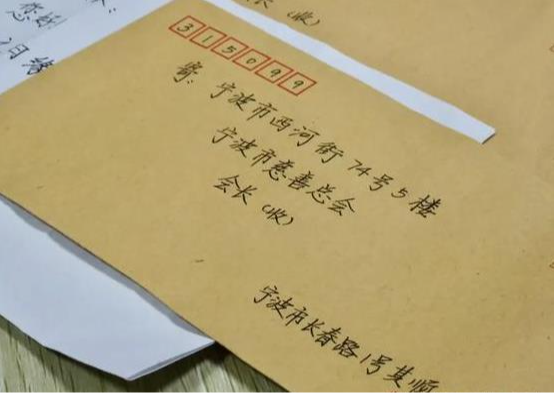 您好
会长（收）
315099
寄：宁波市西河街74号5楼
宁波市慈善总会
会长（收）
宁波市长春路1号其